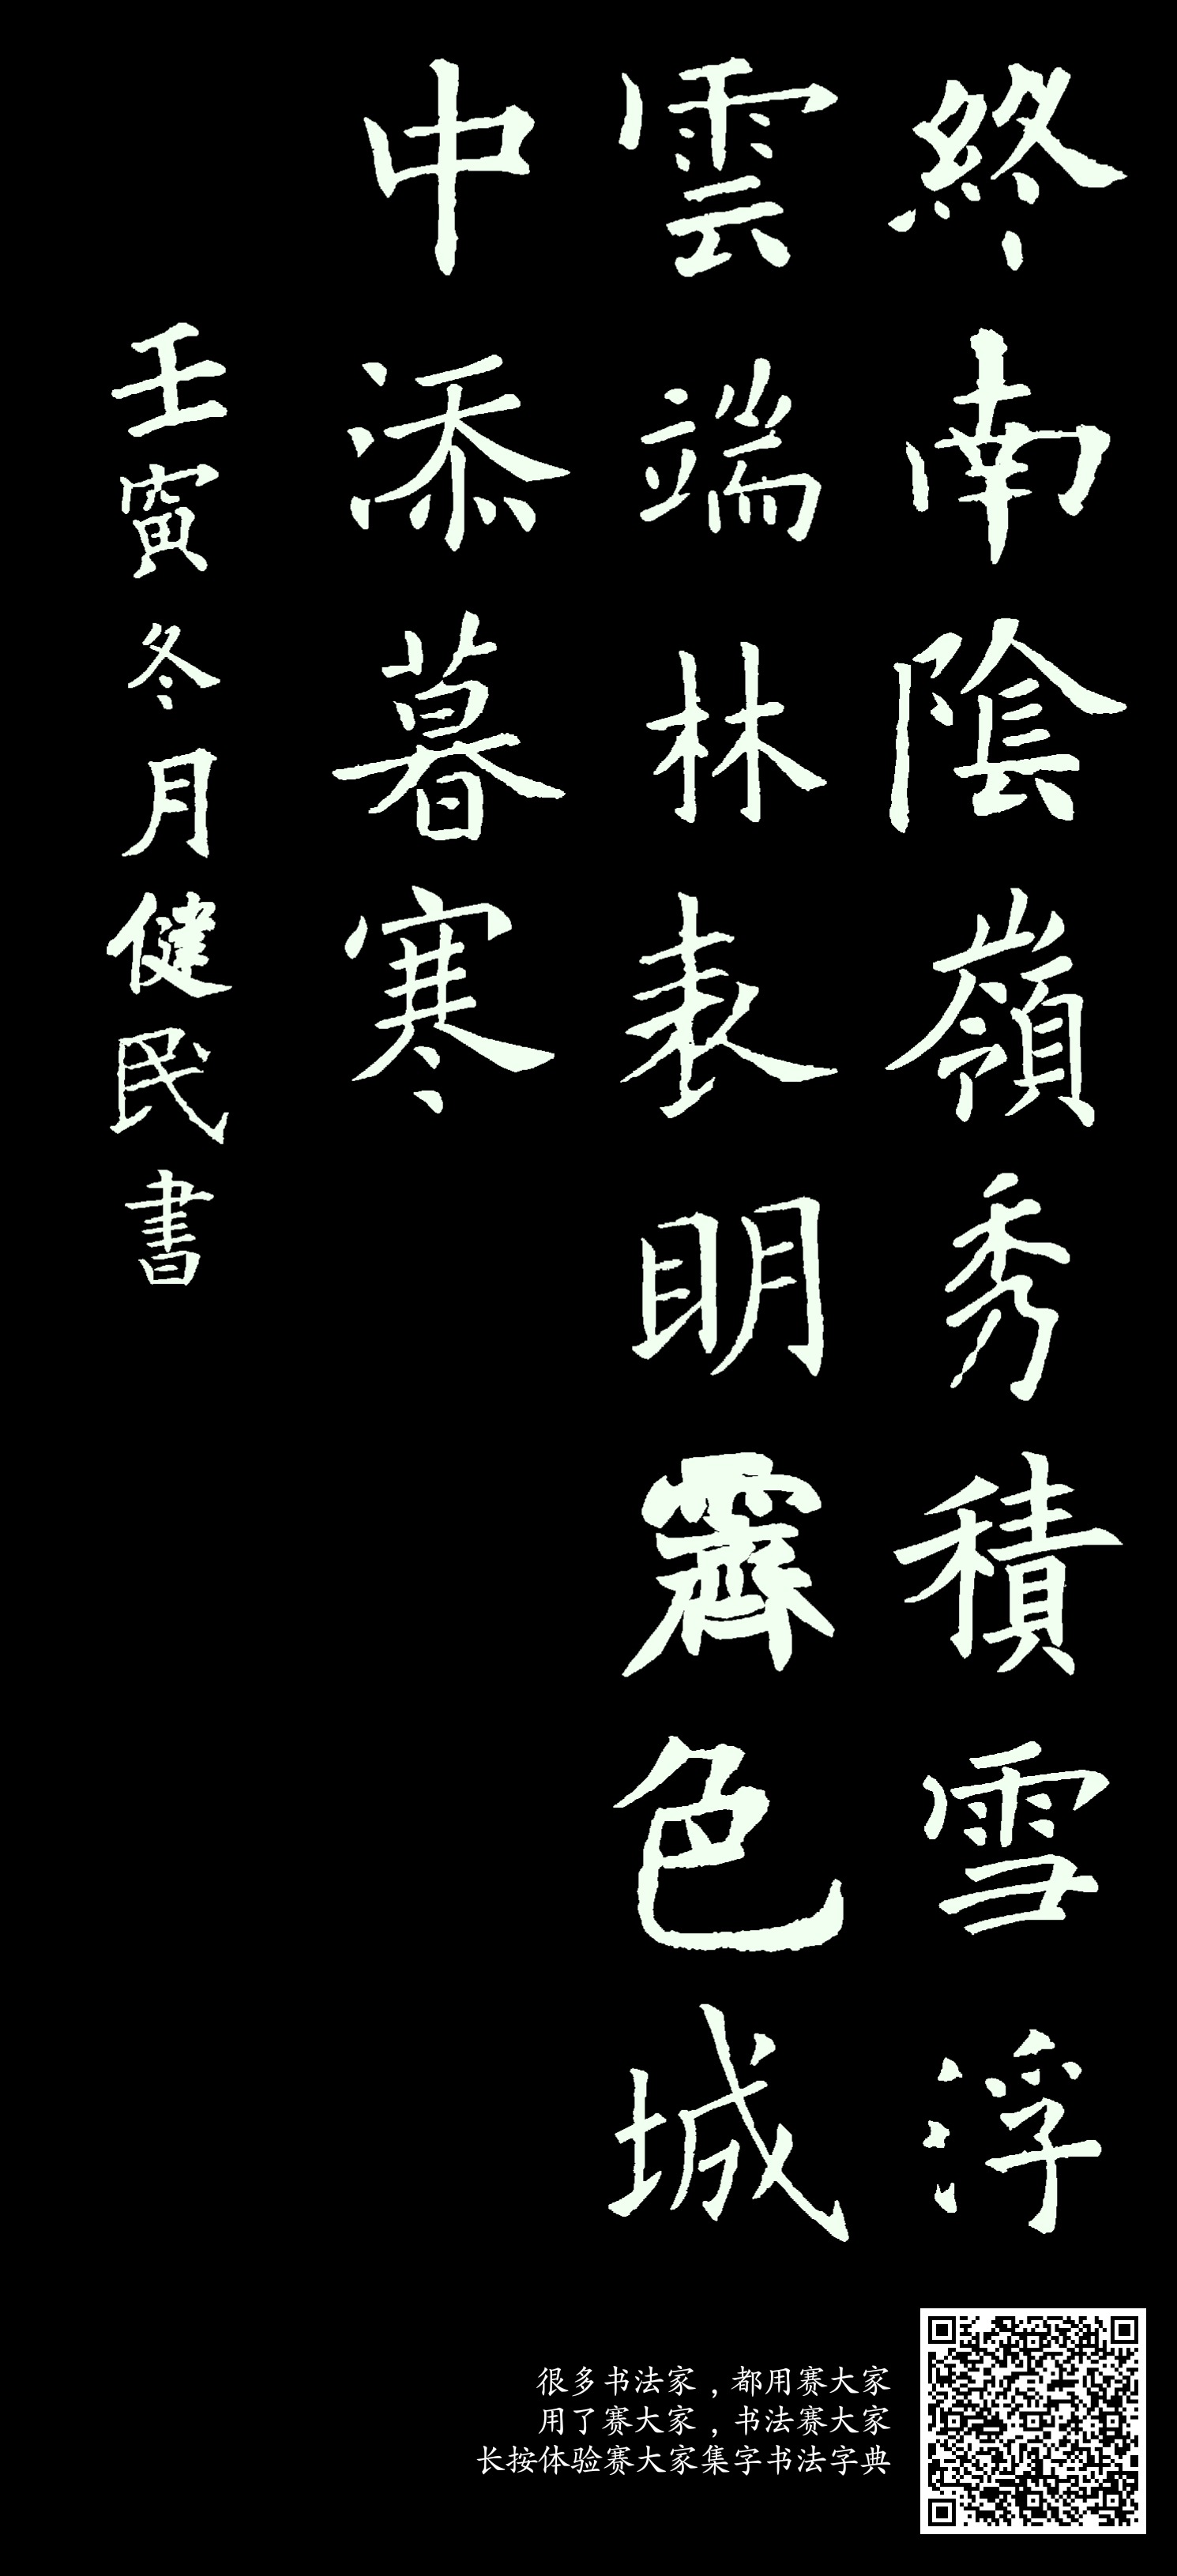 終南陰嶺秀積雪浮
雲端林表明霽色城
中添暮寒
壬寅冬月健民書
很多书法家，都用赛大家
用了赛大家，书法赛大家
长按体验赛大家集字书法字典